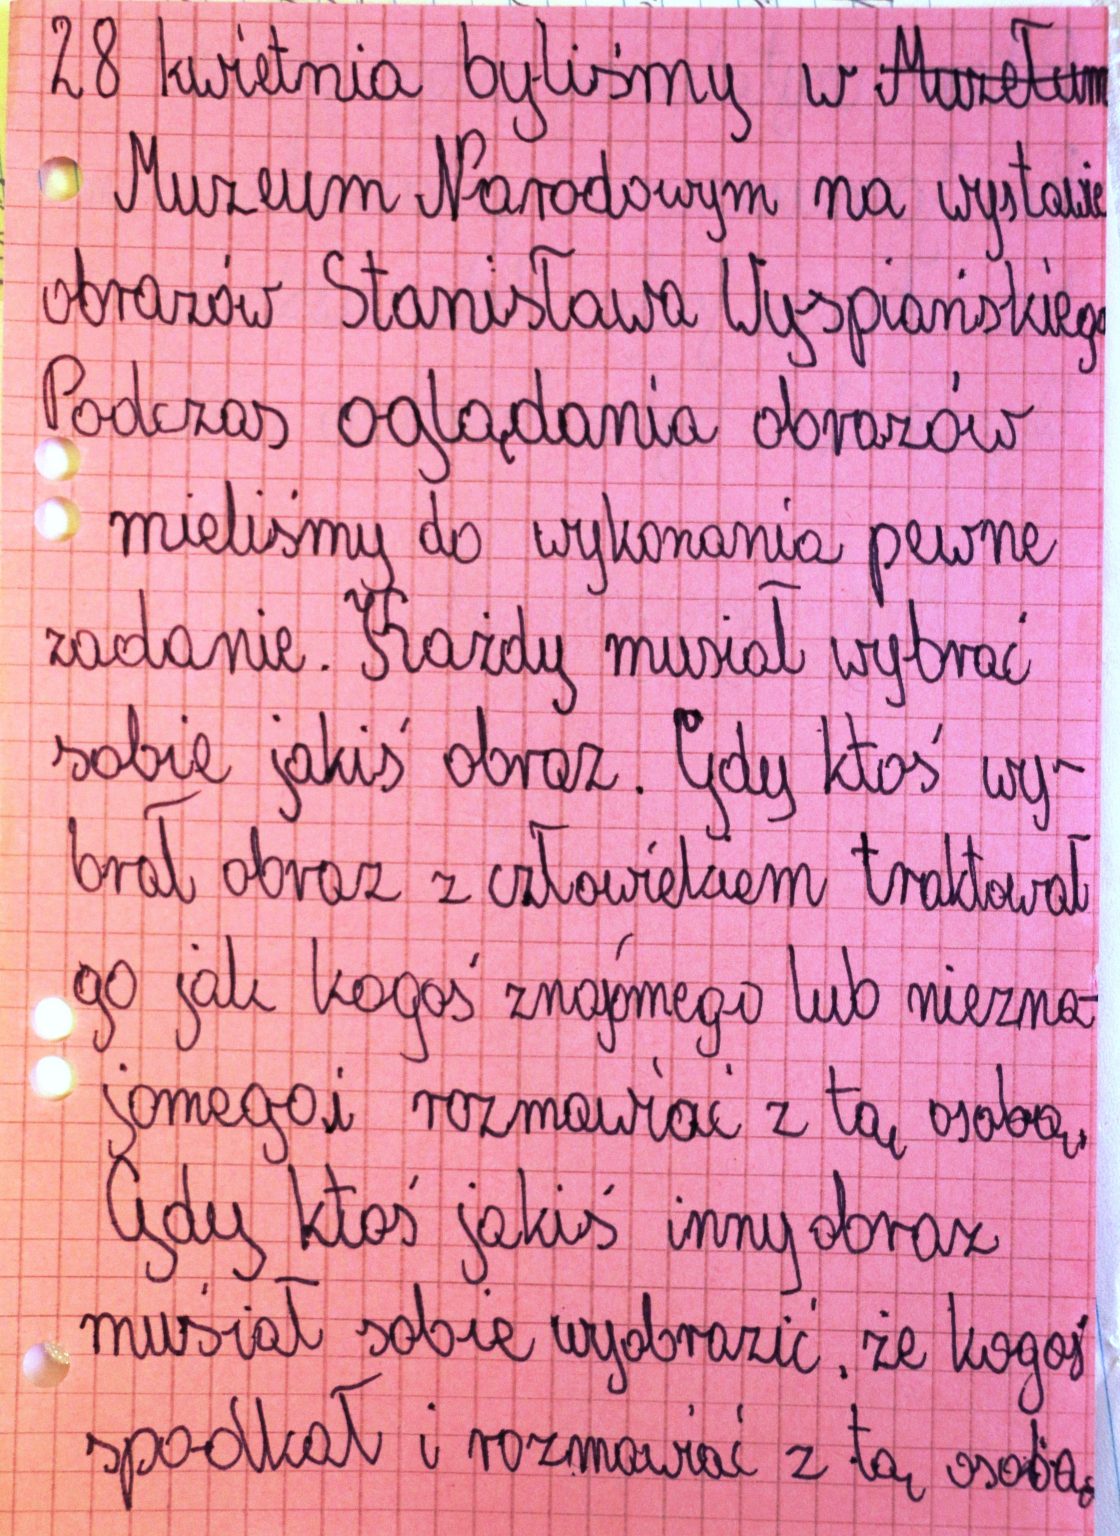 28 kwietnia byliśmy w Muzełum
Muzeum Narodowym na wystawie
obrazów Stanisława Wyspiańskiego
Podczas oglądania obrazów
mieliśmy do wykonania pewne
zadanie. Każdy musiał wybrać
sobie jakiś obraz. Gdy ktoś wy-
brał obraz z człowiekiem traktował
go jak kogoś znajomego lub niezna-
jomego i rozmawiać z tą osobą.
Gdy ktoś jakiś inny obraz
musiał sobie wyobrazić, że kogoś
spodkał i rozmawiać z tą osobą